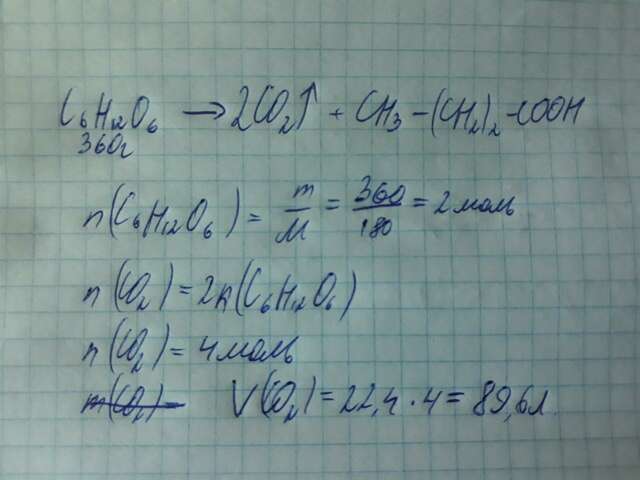 C₆H₁₂O₆ → 2CO₂↑ + CH₃ – (CH₂)₂ – COOH
360г
n(C₆H₁₂O₆) = m/M = 360/180 = 2 моль
n(CO₂) = 2n(C₆H₁₂O₆)
n(CO₂) = 4 моль
m(CO₂) – V(CO₂) = 22,4 · 4 = 89,6л.